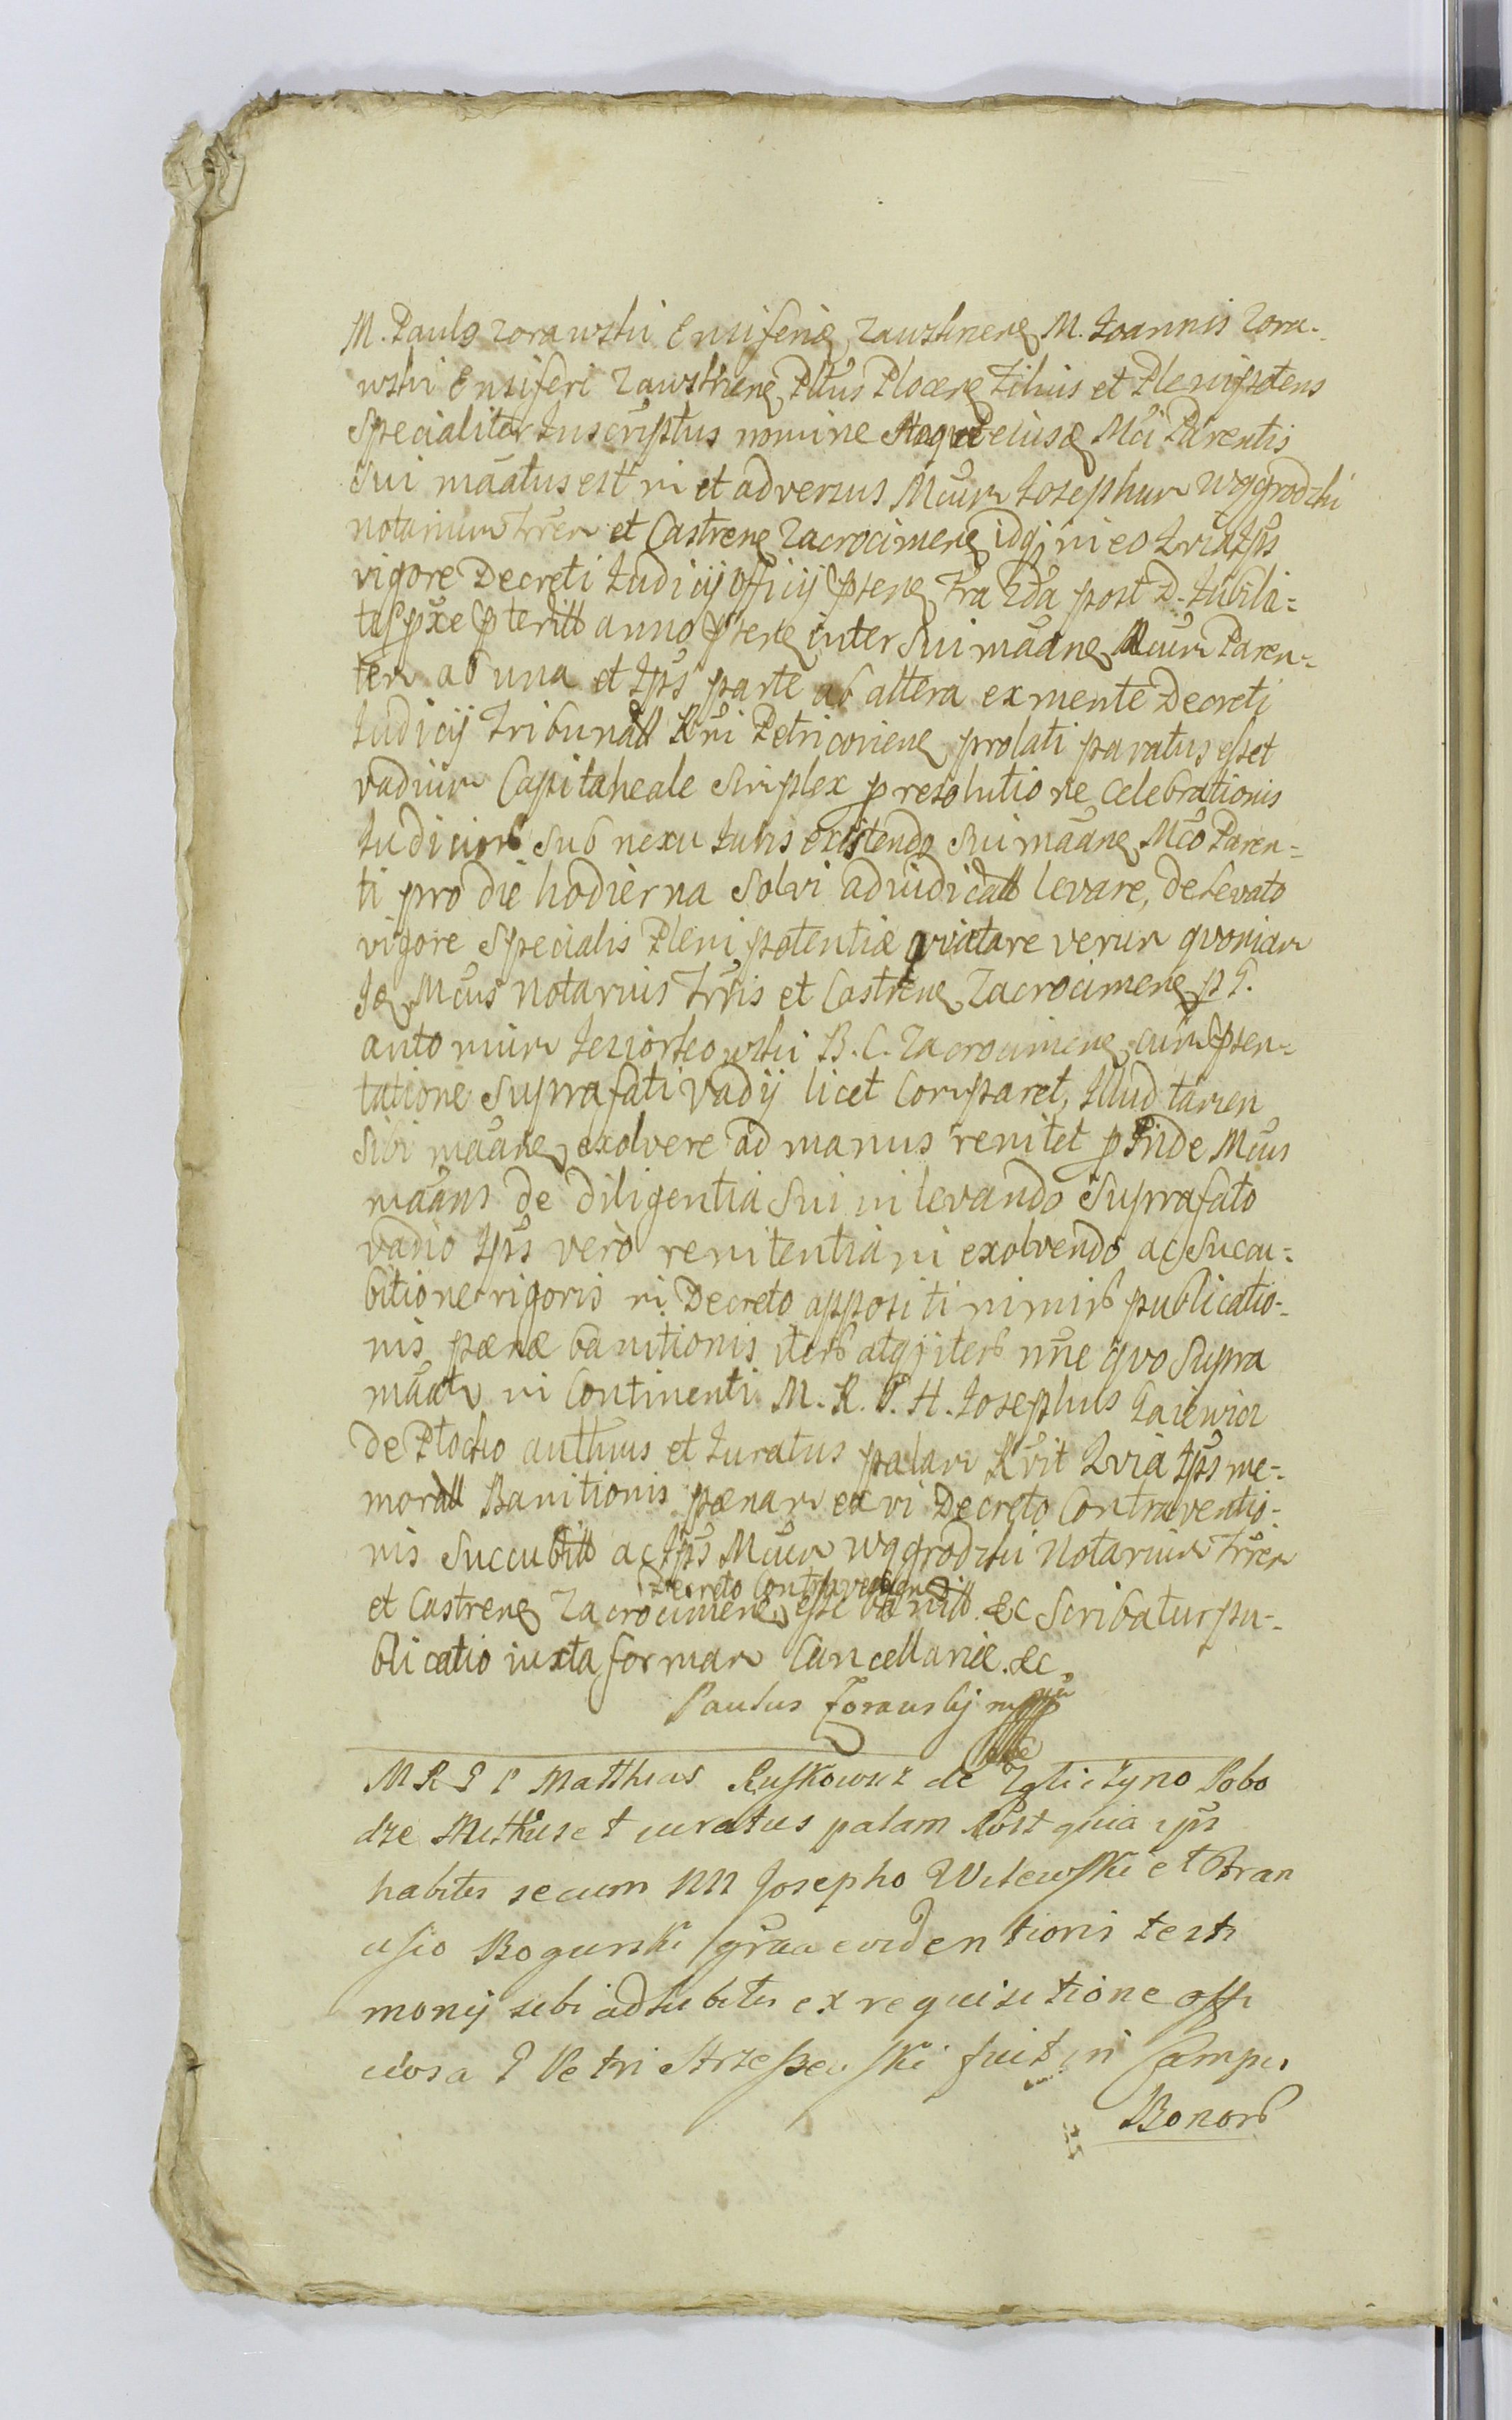 M. Paulus Zorawski Ensiferid Zawskrens M. Joannis Zora-
wski Ensiferi Zawskrens Pltus Plocens Filius et Plenipotens
Specialiter Inscriptus nomine eiusd Mci Parentis
sui mãatus est in et adversus Mcum Josephum Wągrodzki
Notarium Trrem et Castrens Zacrocimens idqj in eo Qvia Ips
vigore Decreti Judicij Officij ptens Fra 2da post D. Jubila-
te pxe pteritt anno ptens inter sui mãans Mcum Paren-
tem ab una et Ips parte ab altera ex mente Decreti
Judicij Tribunall Rni Petricoviens prolati paratus esset
vadium Capitaneale Simplex p resolutione Celebrationis
Judicior sub nexu Juris existendo sui mãans Mco Paren-
ti pro die hodierna Solvi adiudicatt levare, de levato
vigore Specialis Plenipotentiæ qvietare verum qvoniam
Id Mcus Notarius Trris et Castrens Zacrocimens p G.
Antonium Jeziorkowski B. C. Zacrocimens cum pten-
tatione Suprafati Vadij licet Comparet, Illud tamen
sibi mãans exolvere ad manus renitet pinde Mcus
mãans de diligentia Sui in levando Suprafato
vadio Ips verò renitentia in exolvendo ac Succu-
bitione rigoris in Decreto appositi nimir publicatio-
nis pænæ banitionis iter atqj iter nne qvo Supra
mãatr in Continenti M. R. P. H. Josephus Gaiewicz
de Plocko authus et Juratus palam Rvit Qvia Ips me-
morall Banitionis pænam ex vi Decreto Contraventio-
nis Succubitt ac Ips Mcum Wągrodzki Notarium Trrem
Decreto Contraventum
et Castrens Zacrocimens esse banitt &c Scribatur pu-
blicatio iuxta formam Cancellariæ &c
Paulus Zorawskij mpp
M R G P Matthias Ruskowicz de Zgliczyno Pobo
dze Authus et iuratus palam Rvit quia ips
habitis secum NN Josepho Wilewski et Fran
cisio Bogurski grãa evidentioris testi
monij sibi adhibitis ex requisitione offi
ciosa G Petri Strzeszewski fuit in Campis
Bonor